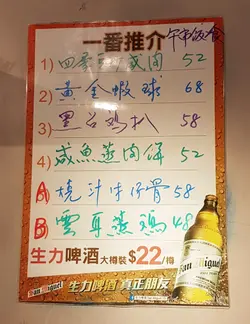 一番推介 午市飯食
1) 四季豆 肉 52
2) 黃金蝦球 68
3) 黑 鷄扒 58
4) 咸魚蒸肉餅 52
A 燒汁牛仔骨 58
B 雲耳蒸鷄 48
生力啤酒 大樽裝 $22/樽
San Miguel 生力啤酒 真正朋友
San Miguel